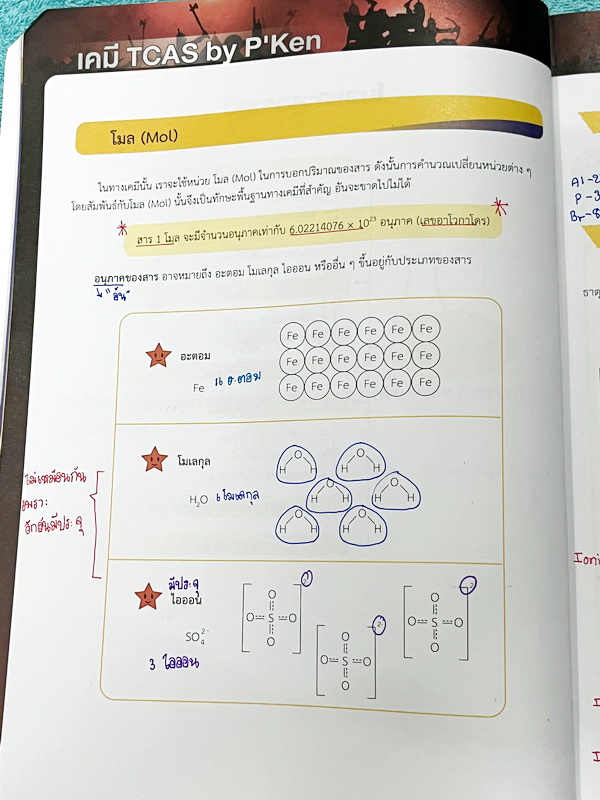 เคมี TCAS by P'Ken
โมล (Mol)
ในทางเคมีนั้น เราจะใช้หน่วย โมล (Mol) ในการบอกปริมาณของสาร ดังนั้นการคำนวณเปลี่ยนหน่วยต่าง ๆ
โดยสัมพันธ์กับโมล (Mol) นั้นจึงเป็นทักษะพื้นฐานทางเคมีที่สำคัญ อันจะขาดไปไม่ได้
สาร 1 โมล จะมีจำนวนอนุภาคเท่ากับ 6.02214076 × 10²³ อนุภาค (เลขอาโวกาโดร)
อนุภาคของสาร อาจหมายถึง อะตอม โมเลกุล ไอออน หรืออื่น ๆ ขึ้นอยู่กับประเภทของสาร
↳ "อัน"
อะตอม
Fe
Fe Fe Fe Fe Fe Fe
Fe Fe Fe Fe Fe Fe
Fe Fe Fe Fe Fe Fe
โมเลกุล
H₂O 6 โมเลกุล
O O
H H H H
O O
H H H H
O O
H H H H
ไม่เหมือนกัน
เพราะ
อีกอันมีประจุ
มีประจุ
ไอออน
SO₄²⁻
3 ไอออน
O O
O S O O S O
O O
O
O S O
O
2-
2-
2-